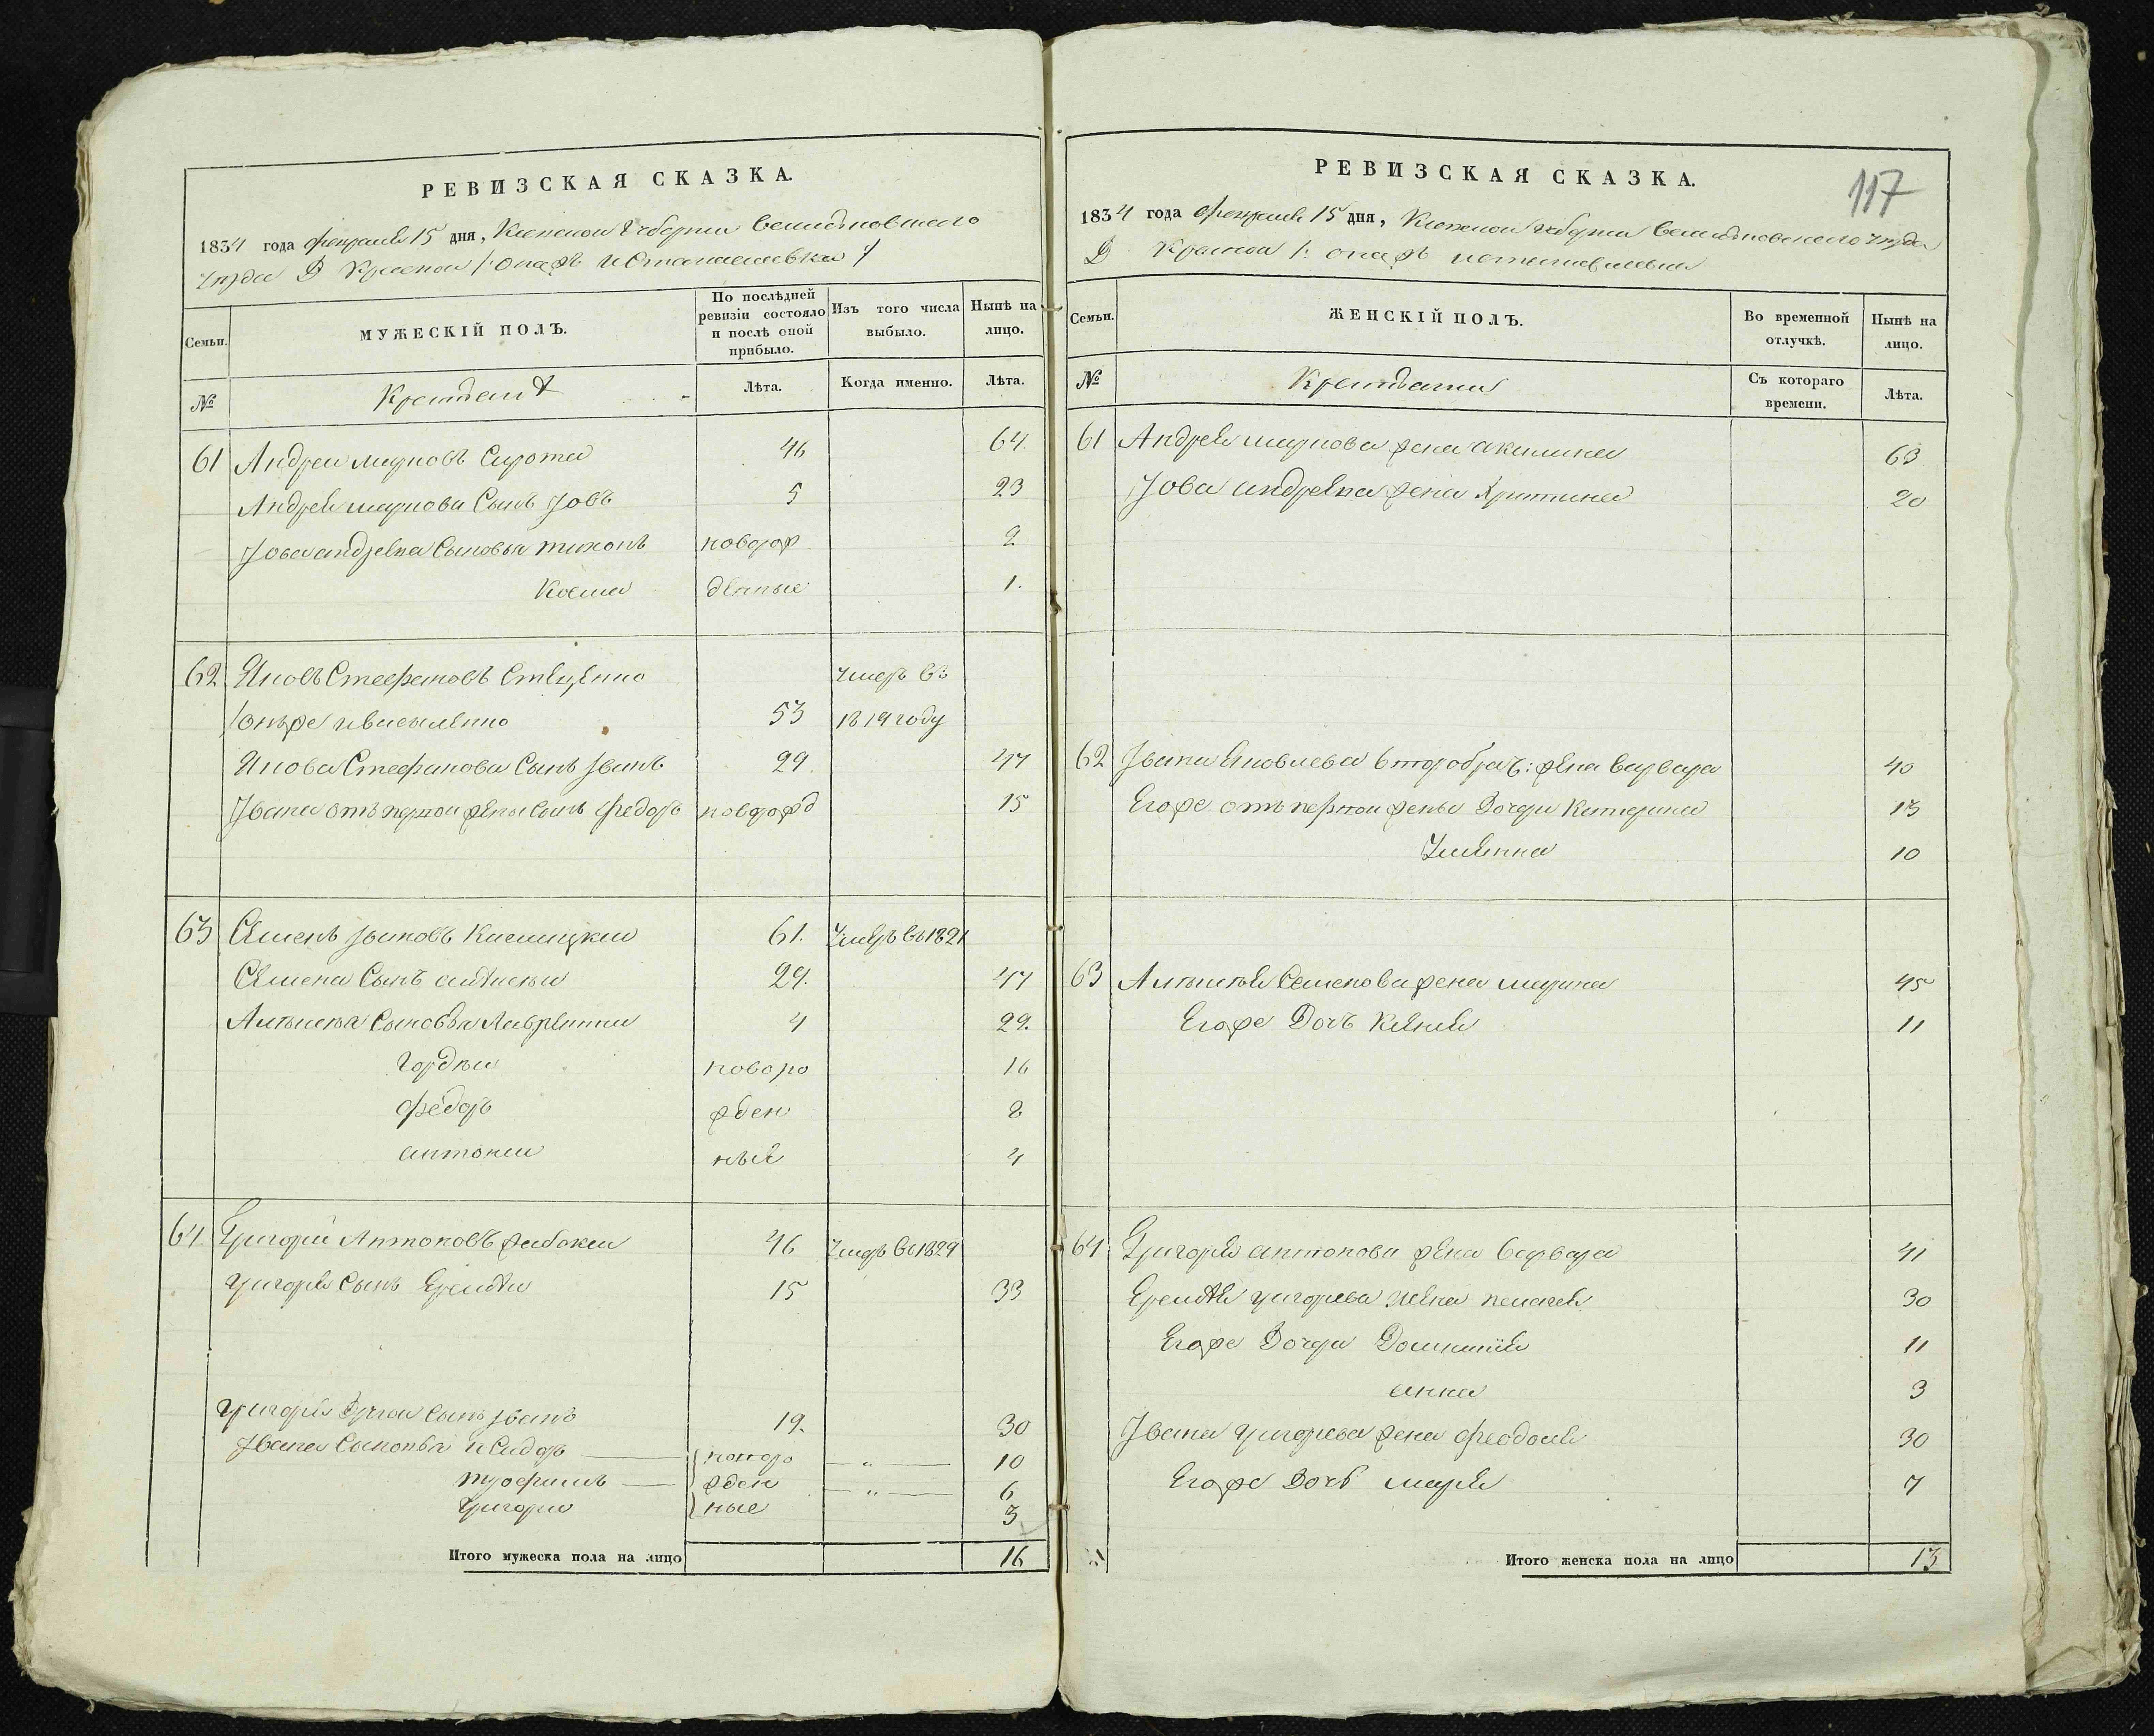 РЕВИЗСКАЯ СКАЗКА.
1834 года февраля 15 дня, Киевской губернии
Д
Семьи.
МУЖЕСКІЙ ПОЛЪ.
По послѣдней ревизіи состояло и послѣ оной прибыло.
Изъ того числа выбыло.
Нынѣ на лицо.
№
Лѣта.
Когда именно.
Лѣта.
61 Андрей Сирота 46 64.
Андрея Сынъ Іовъ 5 23
Іова андреева Сыновья тихонъ новорож 2
Козма денные 1.
62 Яковъ Стефановъ умеръ въ
онъже 53 1819 году
Якова Стефанова Сынъ Іванъ 29 47
Івана отъ первой жены Сынъ Федоръ новорожд 15
63 Семенъ Івановъ 61. Умеръ въ 1821
Семена Сынъ алексѣй 29. 47
Алексѣя Сыновья Лаврентий 4 22.
гордѣй новоро 16
федоръ жден 8
антоній ный 4
64. Григорій Антоновъ 46 Умеръ въ 1829
григорія Сынъ Еремѣй 15 33
григорія Другой Сынъ Іванъ 19. 30
Івана Сыновья Исидоръ новоро — „ — 10
трофимъ жден — „ — 6
григорій ные 3
Итого мужеска пола на лицо 16
117
РЕВИЗСКАЯ СКАЗКА.
1834 года февраля 15 дня, Киевской губернии
Д
Семьи.
ЖЕНСКІЙ ПОЛЪ.
Во временной отлучкѣ.
Нынѣ на лицо.
№
Съ котораго времени.
Лѣта.
61 Андрея жена акилина 63
Іова андреева жена Христина 20
62 Івана Яковлева второбрач: жена варвара 40
Егоже отъ первой жены Дочери Катерина 13
10
63 Алексѣя Семенова жена марина 45
Егоже Дочь 11
64 Григорія антонова жена варвара 41
Еремѣя григорьева жена пелагея 30
Егоже Дочери 11
анна 3
Івана григорьева жена феодосія 30
Егоже Дочь марія 7
Итого женска пола на лицо 13